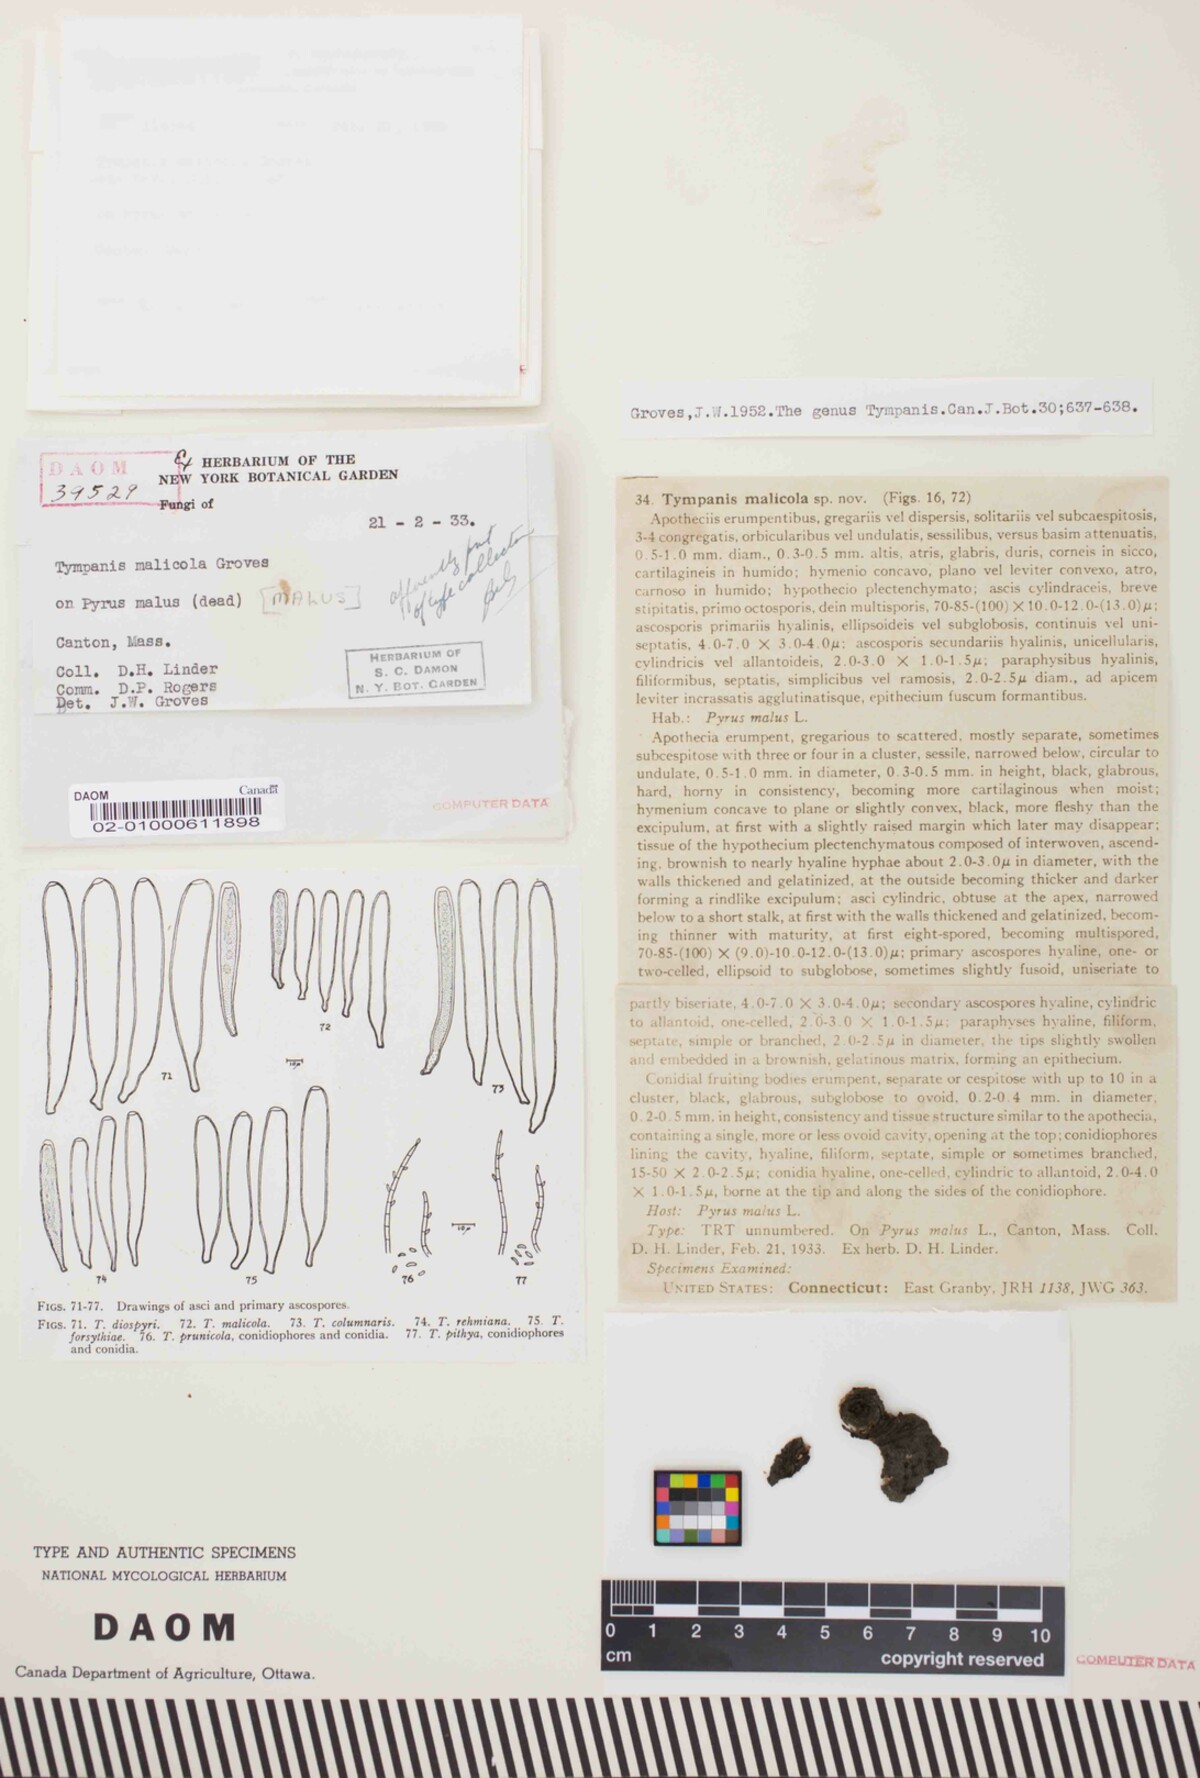 DAOM
39529
Ex HERBARIUM OF THE
NEW YORK BOTANICAL GARDEN
Fungi of
21 - 2 - 33.
Tympanis malicola Groves
on Pyrus malus (dead) [MALUS]
apparently part
of type collection
Canton, Mass.
Coll. D.H. Linder
Comm. D.P. Rogers
Det. J.W. Groves
HERBARIUM OF
S. C. DAMON
N. Y. BOT. GARDEN
DAOM
Canada
02-01000611898
COMPUTER DATA
71
72
10µ
73
74
75
76
10µ
77
FIGS. 71-77. Drawings of asci and primary ascospores.
FIGS. 71. T. diospyri. 72. T. malicola. 73. T. columnaris. 74. T. rehmiana. 75. T.
forsythiae. 76. T. prunicola, conidiophores and conidia. 77. T. pithya, conidiophores
and conidia.
TYPE AND AUTHENTIC SPECIMENS
NATIONAL MYCOLOGICAL HERBARIUM
DAOM
Canada Department of Agriculture, Ottawa.
Groves,J.W.1952.The genus Tympanis.Can.J.Bot.30;637-638.
34. Tympanis malicola sp. nov. (Figs. 16, 72)
Apotheciis erumpentibus, gregariis vel dispersis, solitariis vel subcaespitosis,
3-4 congregatis, orbicularibus vel undulatis, sessilibus, versus basim attenuatis,
0.5-1.0 mm. diam., 0.3-0.5 mm. altis, atris, glabris, duris, corneis in sicco,
cartilagineis in humido; hymenio concavo, plano vel leviter convexo, atro,
carnoso in humido; hypothecio plectenchymato; ascis cylindraceis, breve
stipitatis, primo octosporis, dein multisporis, 70-85-(100) × 10.0-12.0-(13.0)µ;
ascosporis primariis hyalinis, ellipsoideis vel subglobosis, continuis vel uni-
septatis, 4.0-7.0 × 3.0-4.0µ; ascosporis secundariis hyalinis, unicellularis,
cylindricis vel allantoideis, 2.0-3.0 × 1.0-1.5µ; paraphysibus hyalinis,
filiformibus, septatis, simplicibus vel ramosis, 2.0-2.5µ diam., ad apicem
leviter incrassatis agglutinatisque, epithecium fuscum formantibus.
Hab.: Pyrus malus L.
Apothecia erumpent, gregarious to scattered, mostly separate, sometimes
subcespitose with three or four in a cluster, sessile, narrowed below, circular to
undulate, 0.5-1.0 mm. in diameter, 0.3-0.5 mm. in height, black, glabrous,
hard, horny in consistency, becoming more cartilaginous when moist;
hymenium concave to plane or slightly convex, black, more fleshy than the
excipulum, at first with a slightly raised margin which later may disappear;
tissue of the hypothecium plectenchymatous composed of interwoven, ascend-
ing, brownish to nearly hyaline hyphae about 2.0-3.0µ in diameter, with the
walls thickened and gelatinized, at the outside becoming thicker and darker
forming a rindlike excipulum; asci cylindric, obtuse at the apex, narrowed
below to a short stalk, at first with the walls thickened and gelatinized, becom-
ing thinner with maturity, at first eight-spored, becoming multispored,
70-85-(100) × (9.0)-10.0-12.0-(13.0)µ; primary ascospores hyaline, one- or
two-celled, ellipsoid to subglobose, sometimes slightly fusoid, uniseriate to
partly biseriate, 4.0-7.0 × 3.0-4.0µ; secondary ascospores hyaline, cylindric
to allantoid, one-celled, 2.0-3.0 × 1.0-1.5µ; paraphyses hyaline, filiform,
septate, simple or branched, 2.0-2.5µ in diameter, the tips slightly swollen
and embedded in a brownish, gelatinous matrix, forming an epithecium.
Conidial fruiting bodies erumpent, separate or cespitose with up to 10 in a
cluster, black, glabrous, subglobose to ovoid, 0.2-0.4 mm. in diameter,
0.2-0.5 mm. in height, consistency and tissue structure similar to the apothecia,
containing a single, more or less ovoid cavity, opening at the top; conidiophores
lining the cavity, hyaline, filiform, septate, simple or sometimes branched,
15-50 × 2.0-2.5µ; conidia hyaline, one-celled, cylindric to allantoid, 2.0-4.0
× 1.0-1.5µ, borne at the tip and along the sides of the conidiophore.
Host: Pyrus malus L.
Type: TRT unnumbered. On Pyrus malus L., Canton, Mass. Coll.
D. H. Linder, Feb. 21, 1933. Ex herb. D. H. Linder.
Specimens Examined:
UNITED STATES: Connecticut: East Granby, JRH 1138, JWG 363.
0 1 2 3 4 5 6 7 8 9 10
cm
copyright reserved
COMPUTER DATA